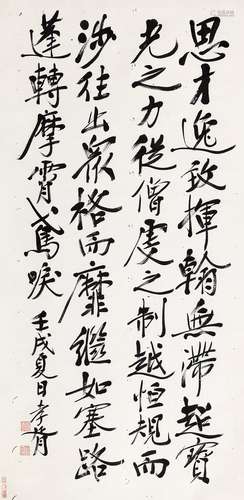 思才逸致揮翰無滯超寶
光之力從僧虔之制越恒規而
涉往出眾格而靡繼如塞路
蓬轉摩霄鳶唳 壬戌夏日